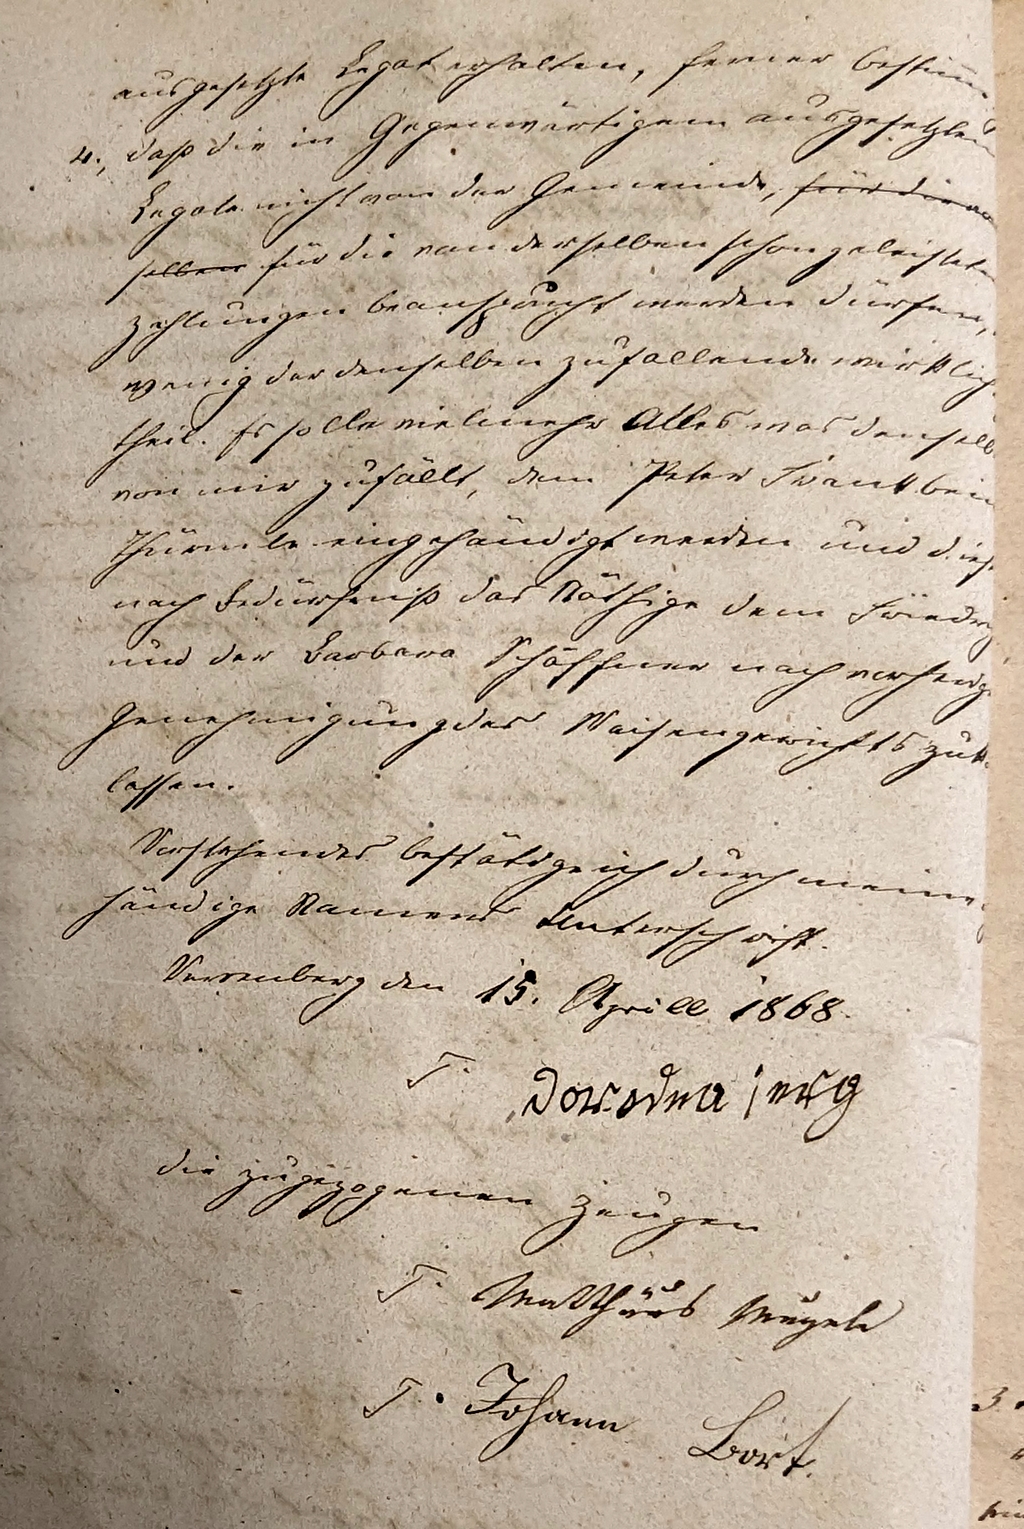 ausgesetzte Legat erhalten, ferner bestim
4., daß die in Gegenwärtigem ausgesetzten
Legate nicht von der Gemeinde, für die von
selben für die von derselben schon geleisteten
Zahlungen beansprucht werden dürfen,
wenig der denselben zufallende wirklich
theil. Es solle vielmehr Alles was denselb
von mir zufällt, dem Peter Frank bein
Thürmle eingehändigt werden und dies
nach Bedürfniß das Nöthige dem Friedr
und der Barbara Schäffner nach vorherig
Genehmigung des Waisengerichts zuk
lassen.
Vorstehendes bestätige ich durch meine
händige Namens Unterschrift.
den 15. Aprill 1868.
T.
die zugezogenen Zeugen
T. Matthäus
T. Johann Bort.
3.